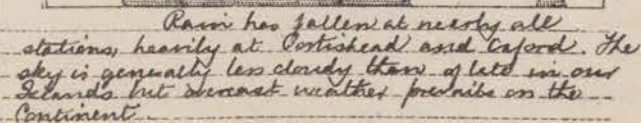 Rain has fallen at nearly all
stations, heavily at Portishead and Oxford. The
sky is generally less cloudy than of late in our
Islands but overcast weather prevails on the
Continent.